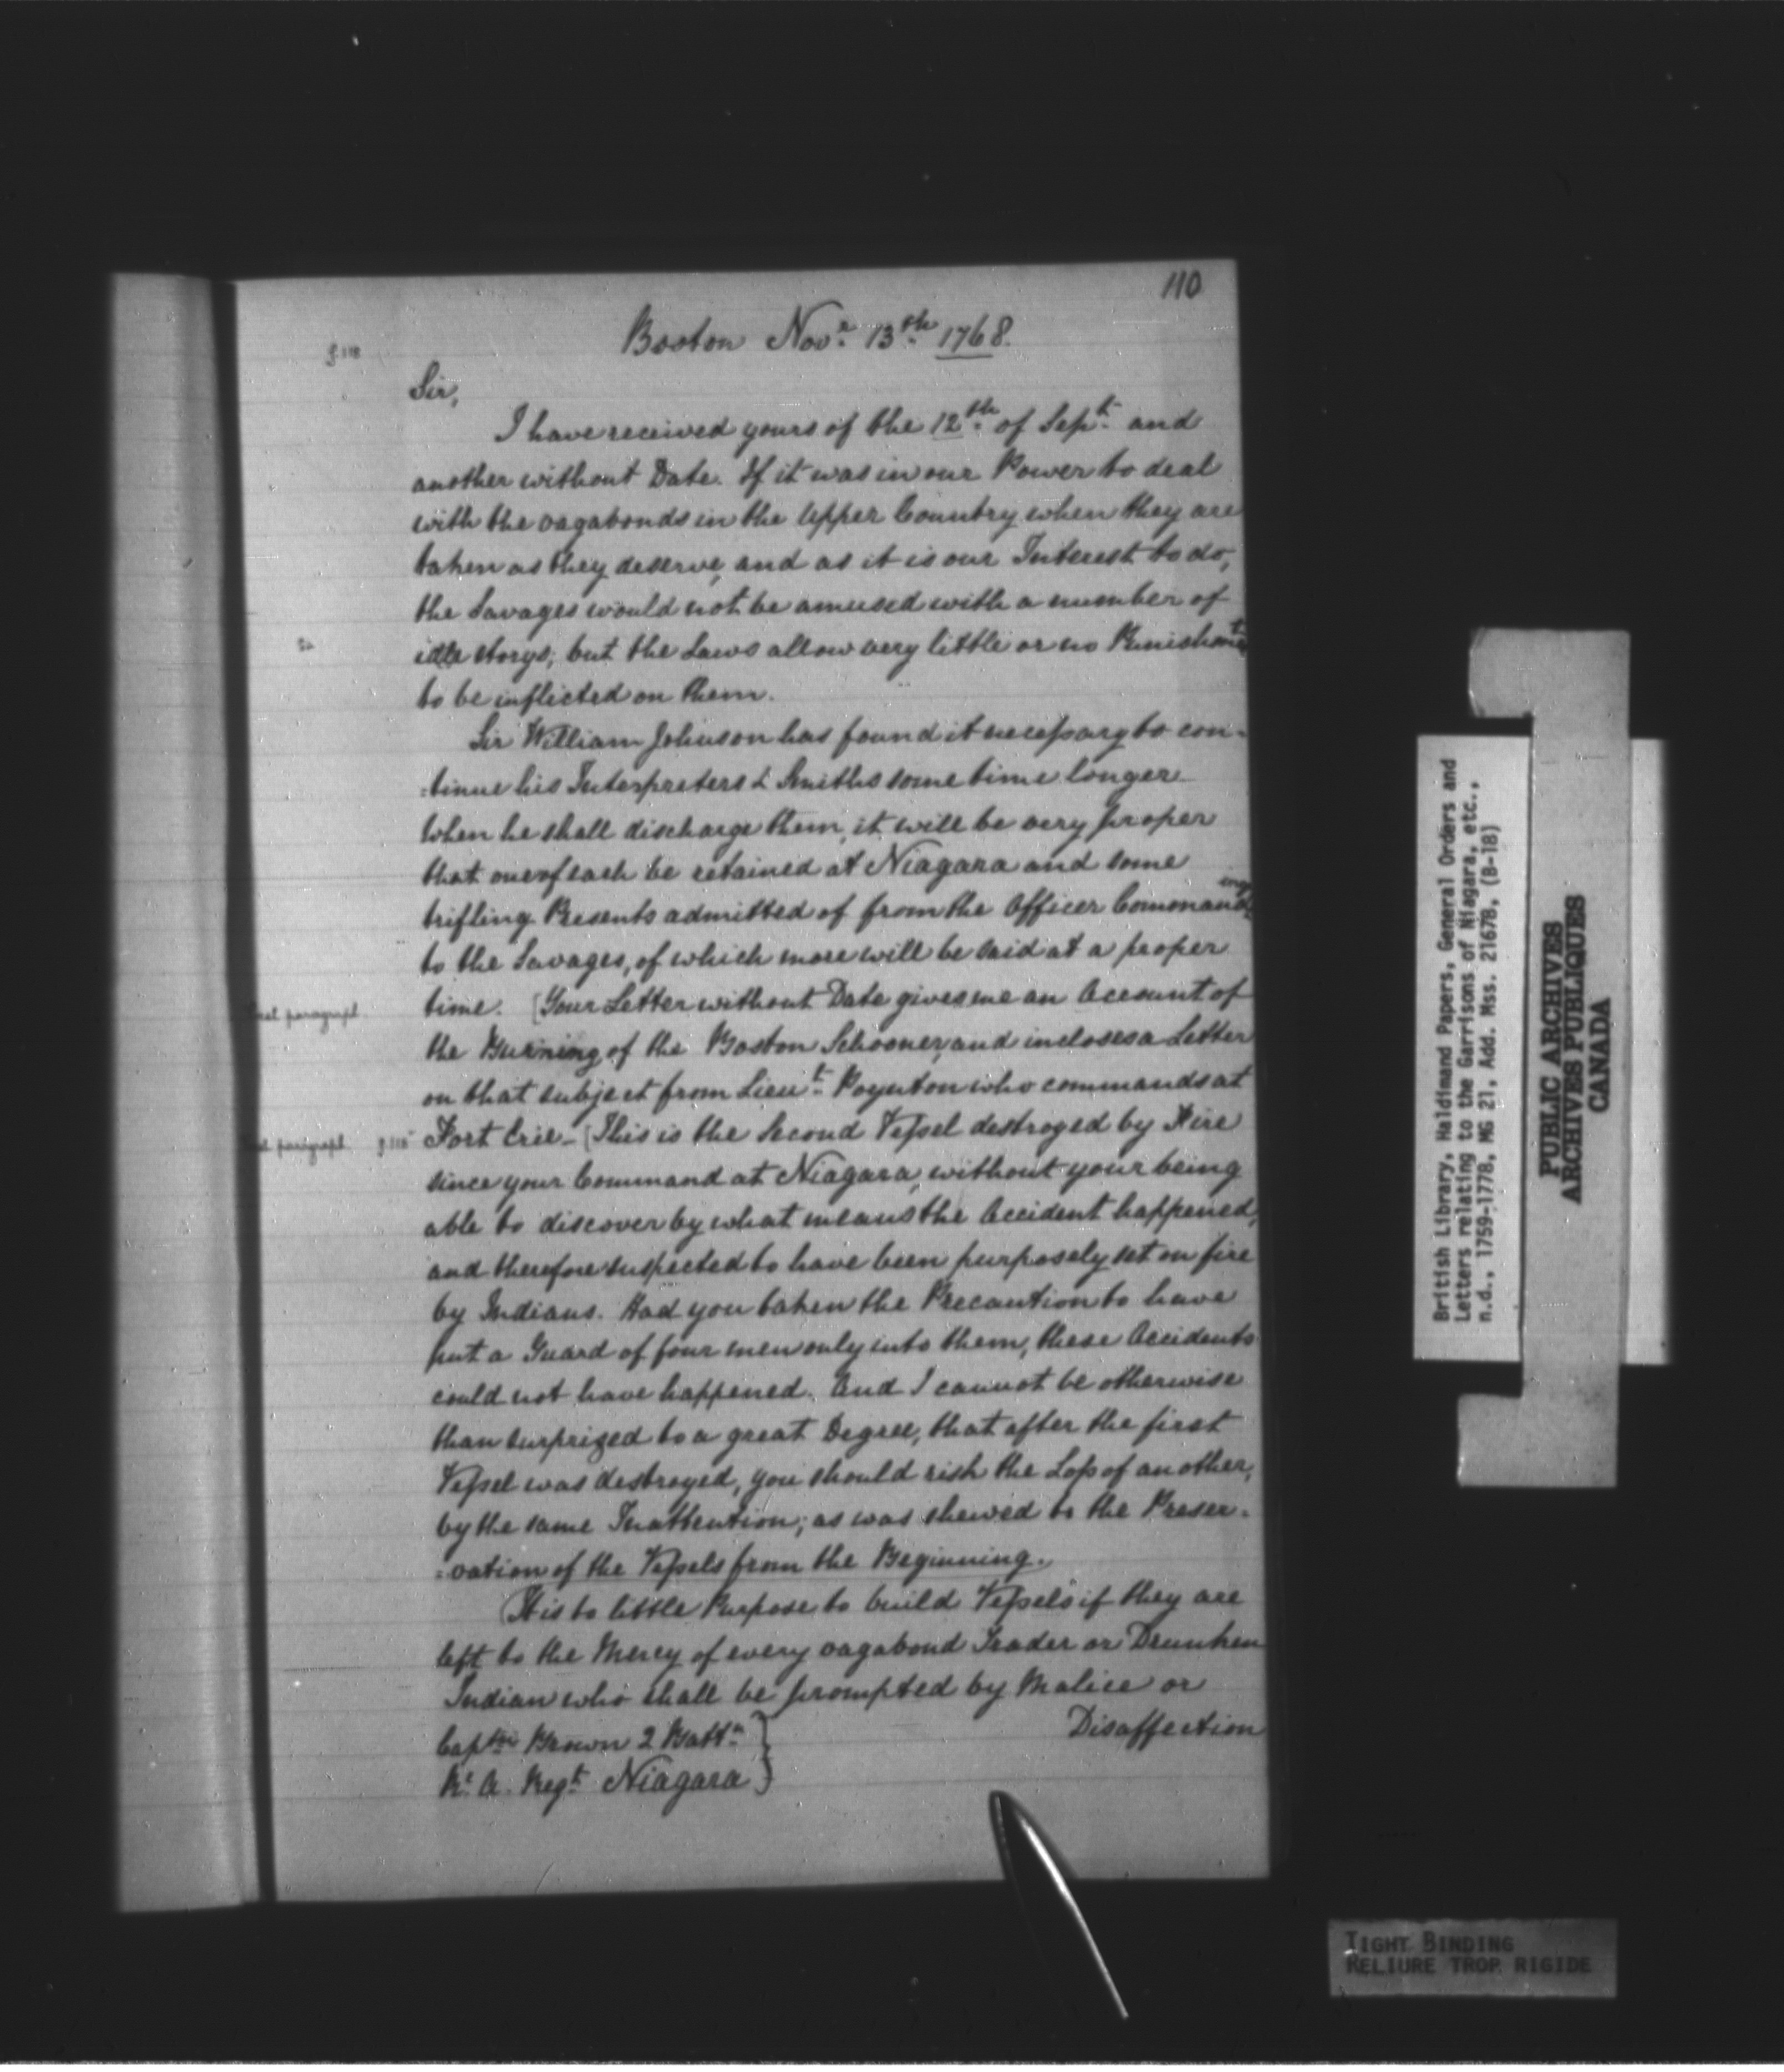 110
Boston Novr. 13th. 1768.
Sir,
I have received yours of the 12th. of Sept. and
another without Date. If it was in our Power to deal
with the vagabonds in the Upper Country when they are
taken as they deserve, and as it is our Interest to do,
the Savages would not be amused with a number of
idle storys; but the Laws allow very little or no Punishmt.
to be inflicted on them.
Sir William Johnson has found it necessary to con-
=tinue his Interpreters & Smiths some time longer
When he shall discharge them, it will be very proper
that one of each be retained at Niagara and some
trifling Presents admitted of from the Officer Commanding
to the Savages, of which more will be said at a proper
paragraph time. [Your Letter without Date gives me an Account of
the Burning of the Boston Schooner, and incloses a Letter
on that subject from Lieut. Poynton who commands at
paragraph Fort Erie_ [This is the Second Vessel destroyed by Fire
since your Command at Niagara, without your being
able to discover by what means the Accident happened,
and therefore suspected to have been purposely set on fire
by Indians. Had you taken the Precaution to have
put a Guard of four men only into them, these Accidents
could not have happened. And I cannot be otherwise
than surprized to a great Degree, that after the first
Vessel was destroyed, you should risk the Loss of another,
by the same Inattention; as was shewed to the Preser-
=vation of the Vessels from the Beginning.
It is to little Purpose to build Vessels if they are
left to the Mercy of every vagabond Trader or Drunken
Indian who shall be prompted by Malice or
Disaffection
Captn. Brown 2 Battn.
Rl. A. Regt. Niagara
British Library, Haldimand Papers, General Orders and
Letters relating to the Garrisons of Niagara, etc.,
n.d., 1759-1778, MG 21, Add. Mss. 21678, (B-18)
PUBLIC ARCHIVES
ARCHIVES PUBLIQUES
CANADA
TIGHT BINDING
RELIURE TROP RIGIDE